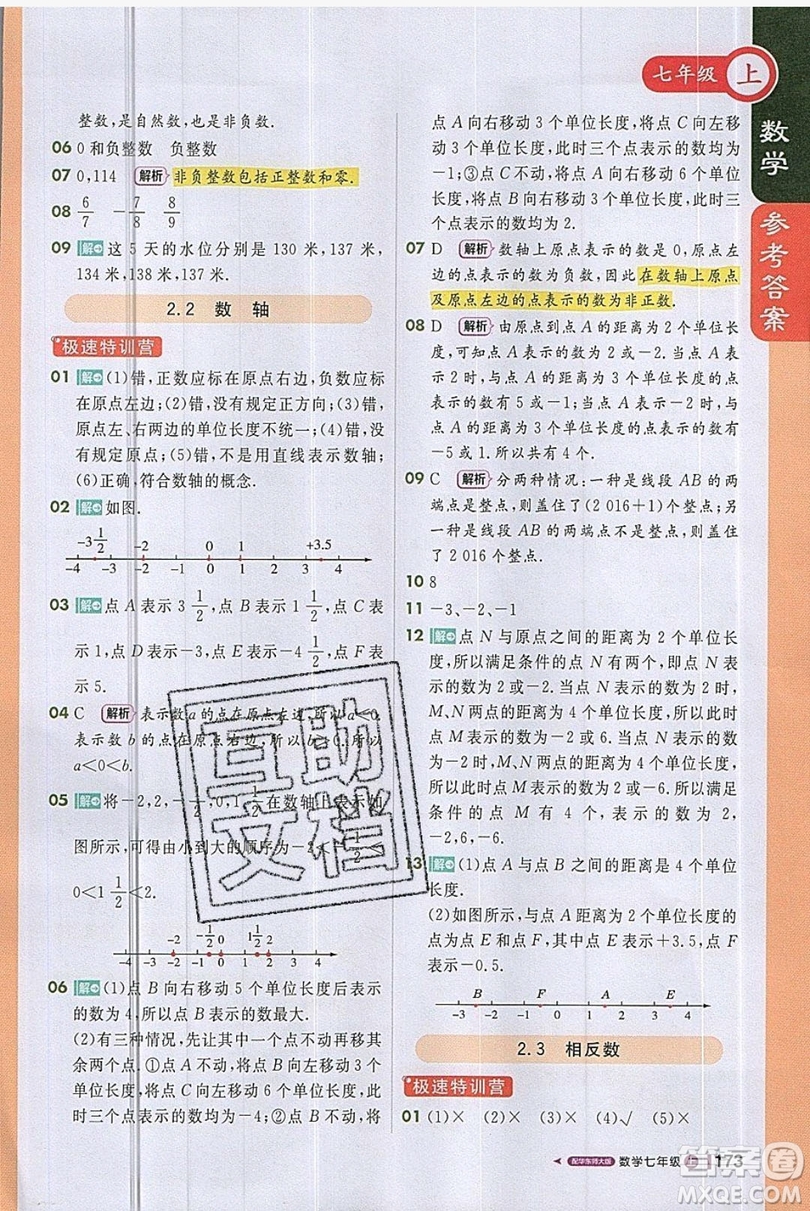 七年级 上
数学
参考答案
整数,是自然数,也是非负数.
06 0和负整数 负整数
07 0,114 解析 非负整数包括正整数和零.
08 6/7 -7/8 8/9
09 解 这5天的水位分别是130米,137米,
134米,138米,137米.
2.2 数 轴
极速特训营
01 解 (1)错,正数应标在原点右边,负数应标
在原点左边;(2)错,没有规定正方向;(3)错,
原点左、右两边的单位长度不统一;(4)错,没
有规定原点;(5)错,不是用直线表示数轴;
(6)正确,符合数轴的概念.
02 解 如图.
-3 1/2 -2 0 1 +3.5
-4 -3 -2 -1 0 1 2 3 4
03 解 点A表示3 1/2,点B表示-1 1/2,点C表
示1,点D表示-3,点E表示-4 1/2,点F表
示5.
04 C 解析 表示数a的点在原点左边,所以a<0.
表示数b的点在原点右边,所以b>0.所以
a<0<b.
05 解 将-2,2,-1/2,0,1 1/2在数轴上表示如
图所示,可得由小到大的顺序为-2<-1/2<
0<1 1/2<2.
-2 -1/2 0 1 1/2 2
-4 -3 -2 -1 0 1 2 3 4
06 解 (1)点B向右移动5个单位长度后表示
的数为4,所以点B表示的数最大.
(2)有三种情况,先让其中一个点不动再移动
其余两个点.①点A不动,将点B向左移动
2个单位长度,将点C向左移动7个单位长度,此
时三个点表示的数均为-4;②点B不动,将
点A向右移动3个单位长度,将点C向左移
动3个单位长度,此时三个点表示的数均为
-1;③点C不动,将点A向右移动6个单位长
度,将点B向右移动3个单位长度,此时三
个点表示的数均为2.
07 D 解析 数轴上原点表示的数是0,原点左
边的点表示的数为负数,因此在数轴上原点
及原点左边的点表示的数为非正数.
08 D 解析 由原点到点A的距离为2个单位
长度,可知点A表示的数为2或-2.当点A
表示2时,与点A的距离为3个单位长度的点
表示的数有5或-1;当点A表示-2时,与
点A的距离为3个单位长度的点表示的数有
-5或1.所以共有4个.
09 C 解析 分两种情况:一种是线段AB的两
端点是整点,则盖住(2 016+1)个整点;
另一种是线段AB的两端点不是整点,则盖住
了2 016个整点.
10 8
11 -3、-2、-1
12 解 点N与原点之间的距离为2个单位长
度,所以满足条件的点N有两个,即点N表
示的数为2或-2.当点N表示的数为2时,
M、N两点的距离为4个单位长度,所以此时点
M表示的数为-2或6.当点N表示的数为
-2时,由点M、N两点的距离为4个单位长度,
所以此时点M表示的数为2或-6.所以满足
条件的点M有4个,表示的数为2,
-2,6,-6.
13 解 (1)点A与点B之间的距离是4个单位
长度.
(2)如图所示,与点A的距离为2个单位长度的
点为点E和点F,点E表示+3.5,点F表示-0.5.
B F A E
-3 -2 -1 0 1 2 3 4
2.3 相反数
极速特训营
01 (1)× (2)× (3)× (4)√ (5)×
配华东师大版 数学七年级 上 173
互助
文档
答案圈
MXQE.COM